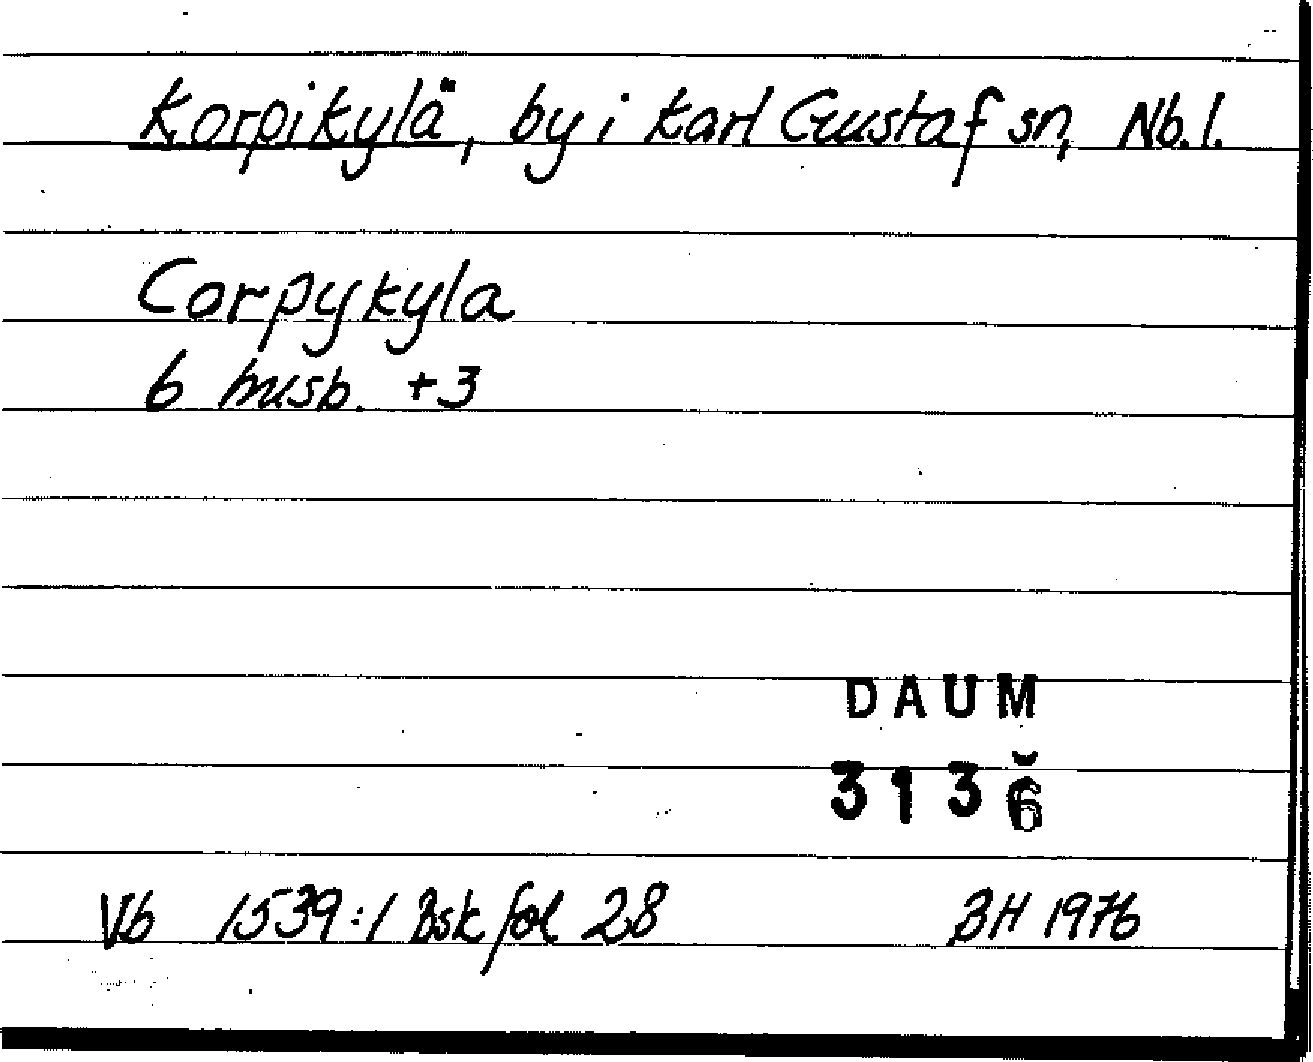 Korpikylä, by i Karl Gustaf sn, Nb. l.
Corpykyla
6 husb. +3
DAUM
3136
Vb 1539:1 Bsk fol 28 BH 1976